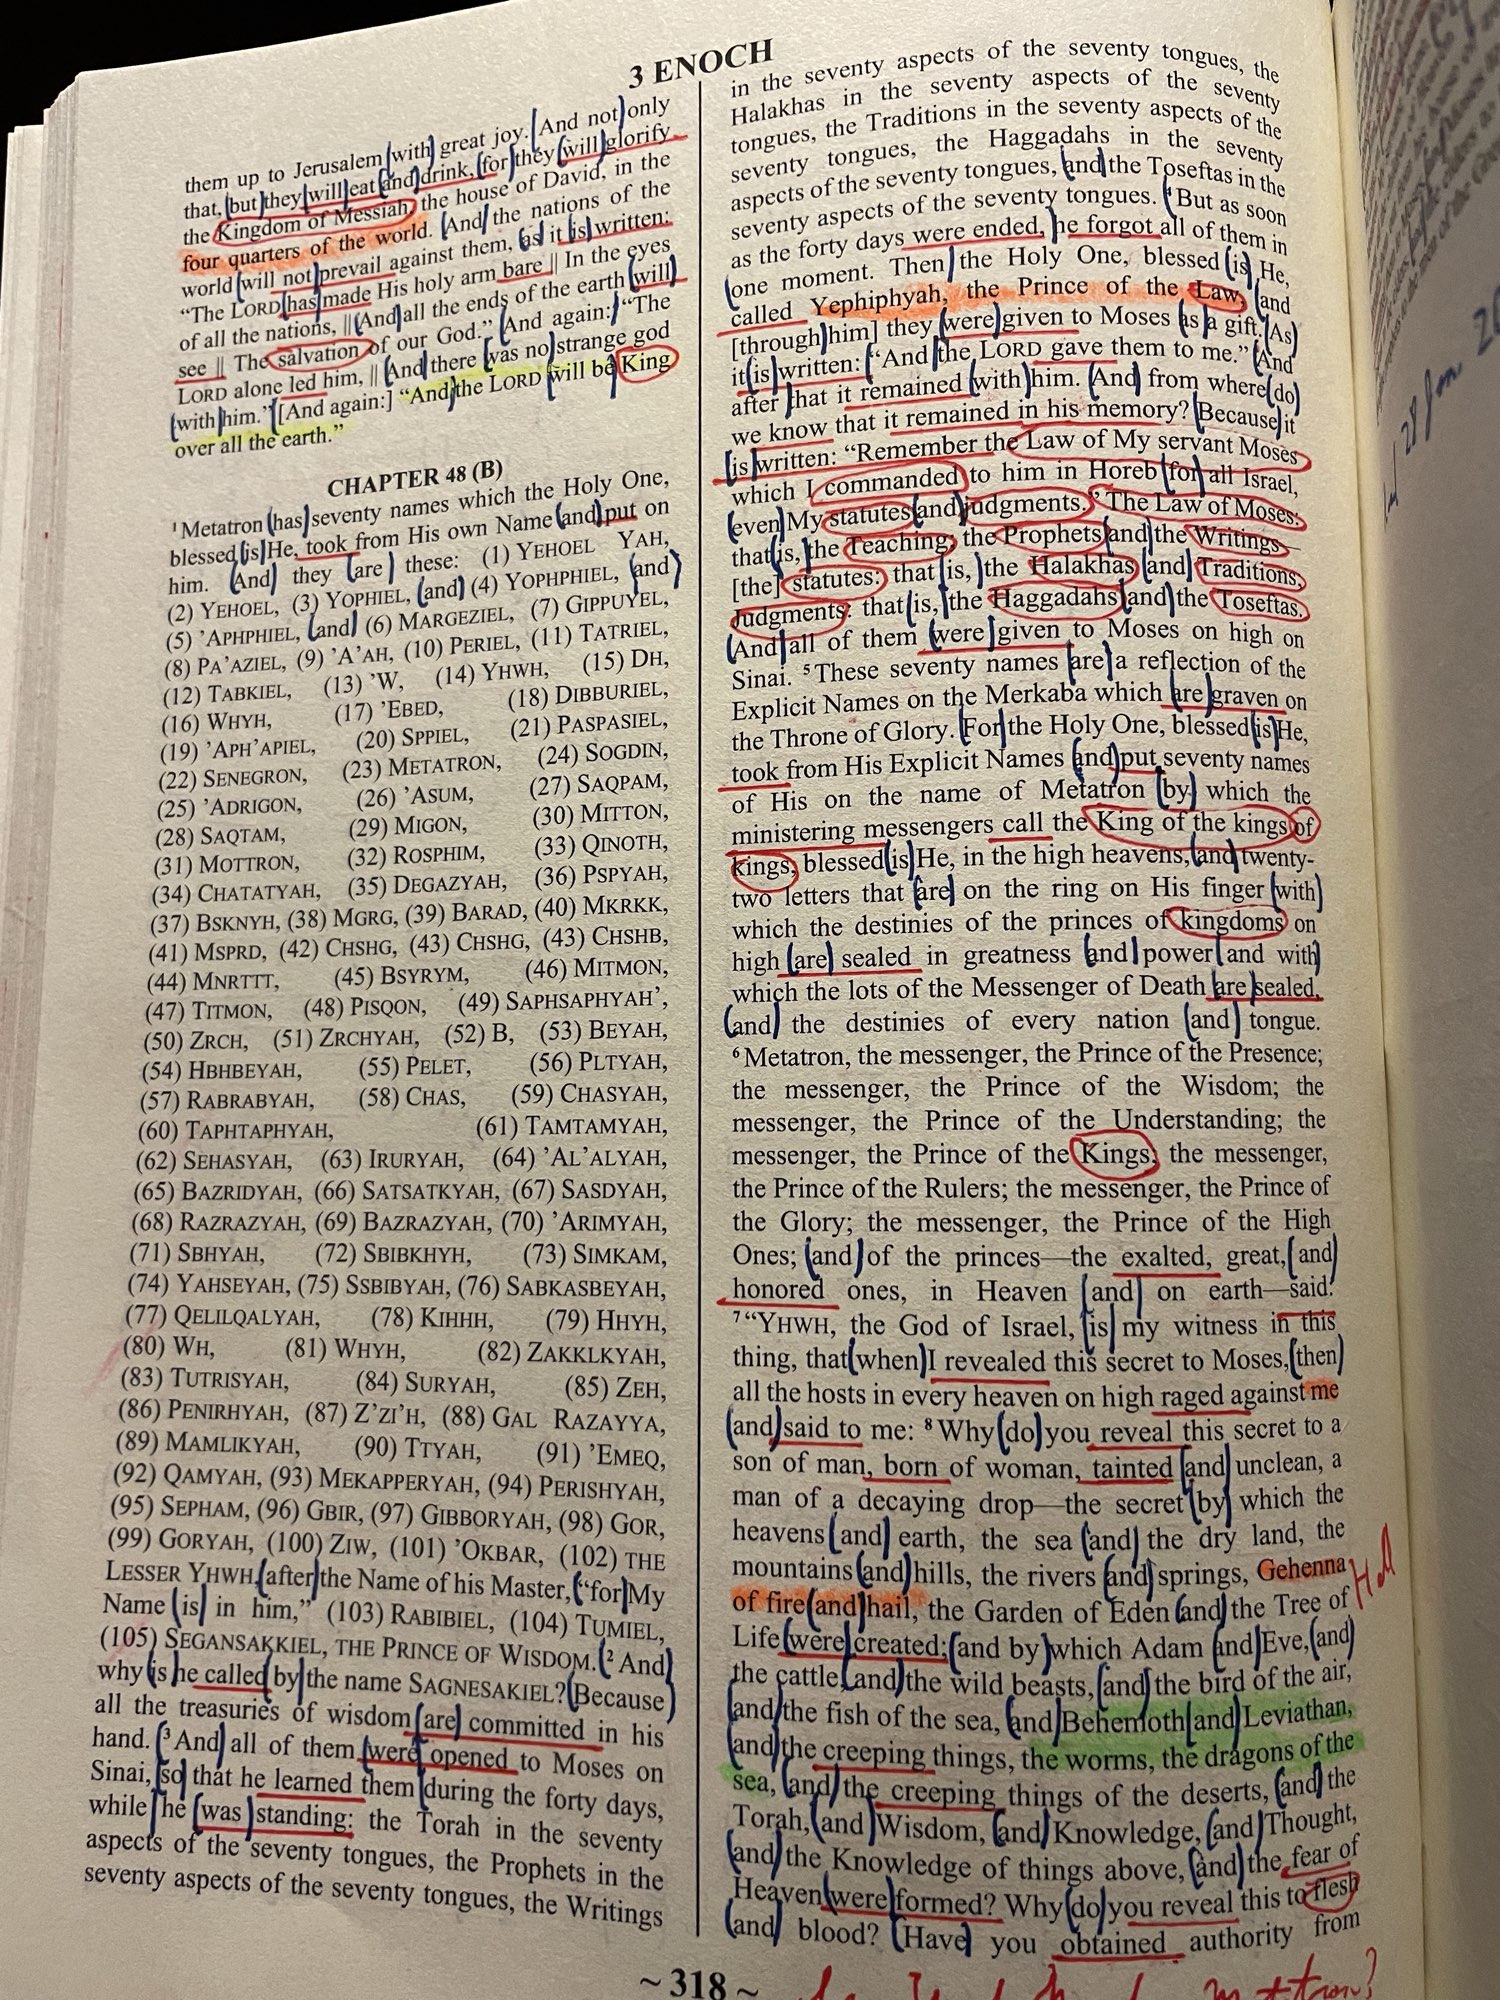 3 ENOCH
them up to Jerusalem with great joy. And not only
that, but they will eat and drink, for they will glorify
the Kingdom of Messiah, the house of David, in the
four quarters of the world. And the nations of the
world will not prevail against them, as it is written:
“The LORD has made His holy arm bare || In the eyes
of all the nations, || And all the ends of the earth will
see || The salvation of our God.” And again: “The
LORD alone led him, || And there was no strange god
with him.” [And again:] “And the LORD will be King
over all the earth.”
CHAPTER 48 (B)
1 Metatron has seventy names which the Holy One,
blessed is He, took from His own Name and put on
him. And they are these: (1) YEHOEL YAH,
(2) YEHOEL, (3) YOPHIEL, and (4) YOPHPHIEL, and
(5) ’APHPHIEL, and (6) MARGEZIEL, (7) GIPPUYEL,
(8) PA’AZIEL, (9) ’A’AH, (10) PERIEL, (11) TATRIEL,
(12) TABKIEL, (13) ’W, (14) YHWH, (15) DH,
(16) WHYH, (17) ’EBED, (18) DIBBURIEL,
(19) ’APH’APIEL, (20) SPPIEL, (21) PASPASIEL,
(22) SENEGRON, (23) METATRON, (24) SOGDIN,
(25) ’ADRIGON, (26) ’ASUM, (27) SAQPAM,
(28) SAQTAM, (29) MIGON, (30) MITTON,
(31) MOTTRON, (32) ROSPHIM, (33) QINOTH,
(34) CHATATYAH, (35) DEGAZYAH, (36) PSPYAH,
(37) BSKNYH, (38) MGRG, (39) BARAD, (40) MKRKK,
(41) MSPRD, (42) CHSHG, (43) CHSHG, (43) CHSHB,
(44) MNRTTT, (45) BSYRYM, (46) MITMON,
(47) TITMON, (48) PISQON, (49) SAPHSAPHYAH’,
(50) ZRCH, (51) ZRCHYAH, (52) B, (53) BEYAH,
(54) HBHBEYAH, (55) PELET, (56) PLTYAH,
(57) RABRABYAH, (58) CHAS, (59) CHASYAH,
(60) TAPHTAPHYAH, (61) TAMTAMYAH,
(62) SEHASYAH, (63) IRURYAH, (64) ’AL’ALYAH,
(65) BAZRIDYAH, (66) SATSATKYAH, (67) SASDYAH,
(68) RAZRAZYAH, (69) BAZRAZYAH, (70) ’ARIMYAH,
(71) SBHYAH, (72) SBIBKHYH, (73) SIMKAM,
(74) YAHSEYAH, (75) SSBIBYAH, (76) SABKASBEYAH,
(77) QELILQALYAH, (78) KIHHH, (79) HHYH,
(80) WH, (81) WHYH, (82) ZAKKLKYAH,
(83) TUTRISYAH, (84) SURYAH, (85) ZEH,
(86) PENIRHYAH, (87) Z’ZI’H, (88) GAL RAZAYYA,
(89) MAMLIKYAH, (90) TTYAH, (91) ’EMEQ,
(92) QAMYAH, (93) MEKAPPERYAH, (94) PERISHYAH,
(95) SEPHAM, (96) GBIR, (97) GIBBORYAH, (98) GOR,
(99) GORYAH, (100) ZIW, (101) ’OKBAR, (102) THE
LESSER YHWH, after the Name of his Master, “for My
Name is in him,” (103) RABIBIEL, (104) TUMIEL,
(105) SEGANSAKKIEL, THE PRINCE OF WISDOM. 2 And
why is he called by the name SAGNESAKIEL? Because
all the treasuries of wisdom are committed in his
hand. 3 And all of them were opened to Moses on
Sinai, so that he learned them during the forty days,
while he was standing: the Torah in the seventy
aspects of the seventy tongues, the Prophets in the
seventy aspects of the seventy tongues, the Writings
in the seventy aspects of the seventy tongues, the
Halakhas in the seventy aspects of the seventy
tongues, the Traditions in the seventy aspects of the
seventy tongues, the Haggadahs in the seventy
aspects of the seventy tongues, and the Toseftas in the
seventy aspects of the seventy tongues. 4 But as soon
as the forty days were ended, he forgot all of them in
one moment. Then the Holy One, blessed is He,
called Yephiphyah, the Prince of the Law, and
[through him] they were given to Moses as a gift. As
it is written: “And the LORD gave them to me.” And
after that it remained with him. And from where do
we know that it remained in his memory? Because it
is written: “Remember the Law of My servant Moses
which I commanded to him in Horeb for all Israel,
even My statutes and judgments.” The Law of Moses:
that is, the Teaching, the Prophets and the Writings—
[the] statutes: that is, the Halakhas and Traditions,
Judgments: that is, the Haggadahs and the Toseftas.
And all of them were given to Moses on high on
Sinai. 5 These seventy names are a reflection of the
Explicit Names on the Merkaba which are graven on
the Throne of Glory. For the Holy One, blessed is He,
took from His Explicit Names and put seventy names
of His on the name of Metatron by which the
ministering messengers call the King of the kings of
kings, blessed is He, in the high heavens, and twenty-
two letters that are on the ring on His finger with
which the destinies of the princes of kingdoms on
high are sealed in greatness and power and with
which the lots of the Messenger of Death are sealed,
and the destinies of every nation and tongue.
6 Metatron, the messenger, the Prince of the Presence;
the messenger, the Prince of the Wisdom; the
messenger, the Prince of the Understanding; the
messenger, the Prince of the Kings, the messenger,
the Prince of the Rulers; the messenger, the Prince of
the Glory; the messenger, the Prince of the High
Ones; and of the princes—the exalted, great, and
honored ones, in Heaven and on earth—said:
7 “YHWH, the God of Israel, is my witness in this
thing, that when I revealed this secret to Moses, then
all the hosts in every heaven on high raged against me
and said to me: 8 Why do you reveal this secret to a
son of man, born of woman, tainted and unclean, a
man of a decaying drop—the secret by which the
heavens and earth, the sea and the dry land, the
mountains and hills, the rivers and springs, Gehenna
of fire and hail, the Garden of Eden and the Tree of
Hell
Life were created; and by which Adam and Eve, and
the cattle, and the wild beasts, and the bird of the air,
and the fish of the sea, and Behemoth and Leviathan,
and the creeping things, the worms, the dragons of the
sea, and the creeping things of the deserts, and the
Torah, and Wisdom, and Knowledge, and Thought,
and the Knowledge of things above, and the fear of
Heaven were formed? Why do you reveal this to flesh
and blood? Have you obtained authority from
~ 318 ~
Metatron?